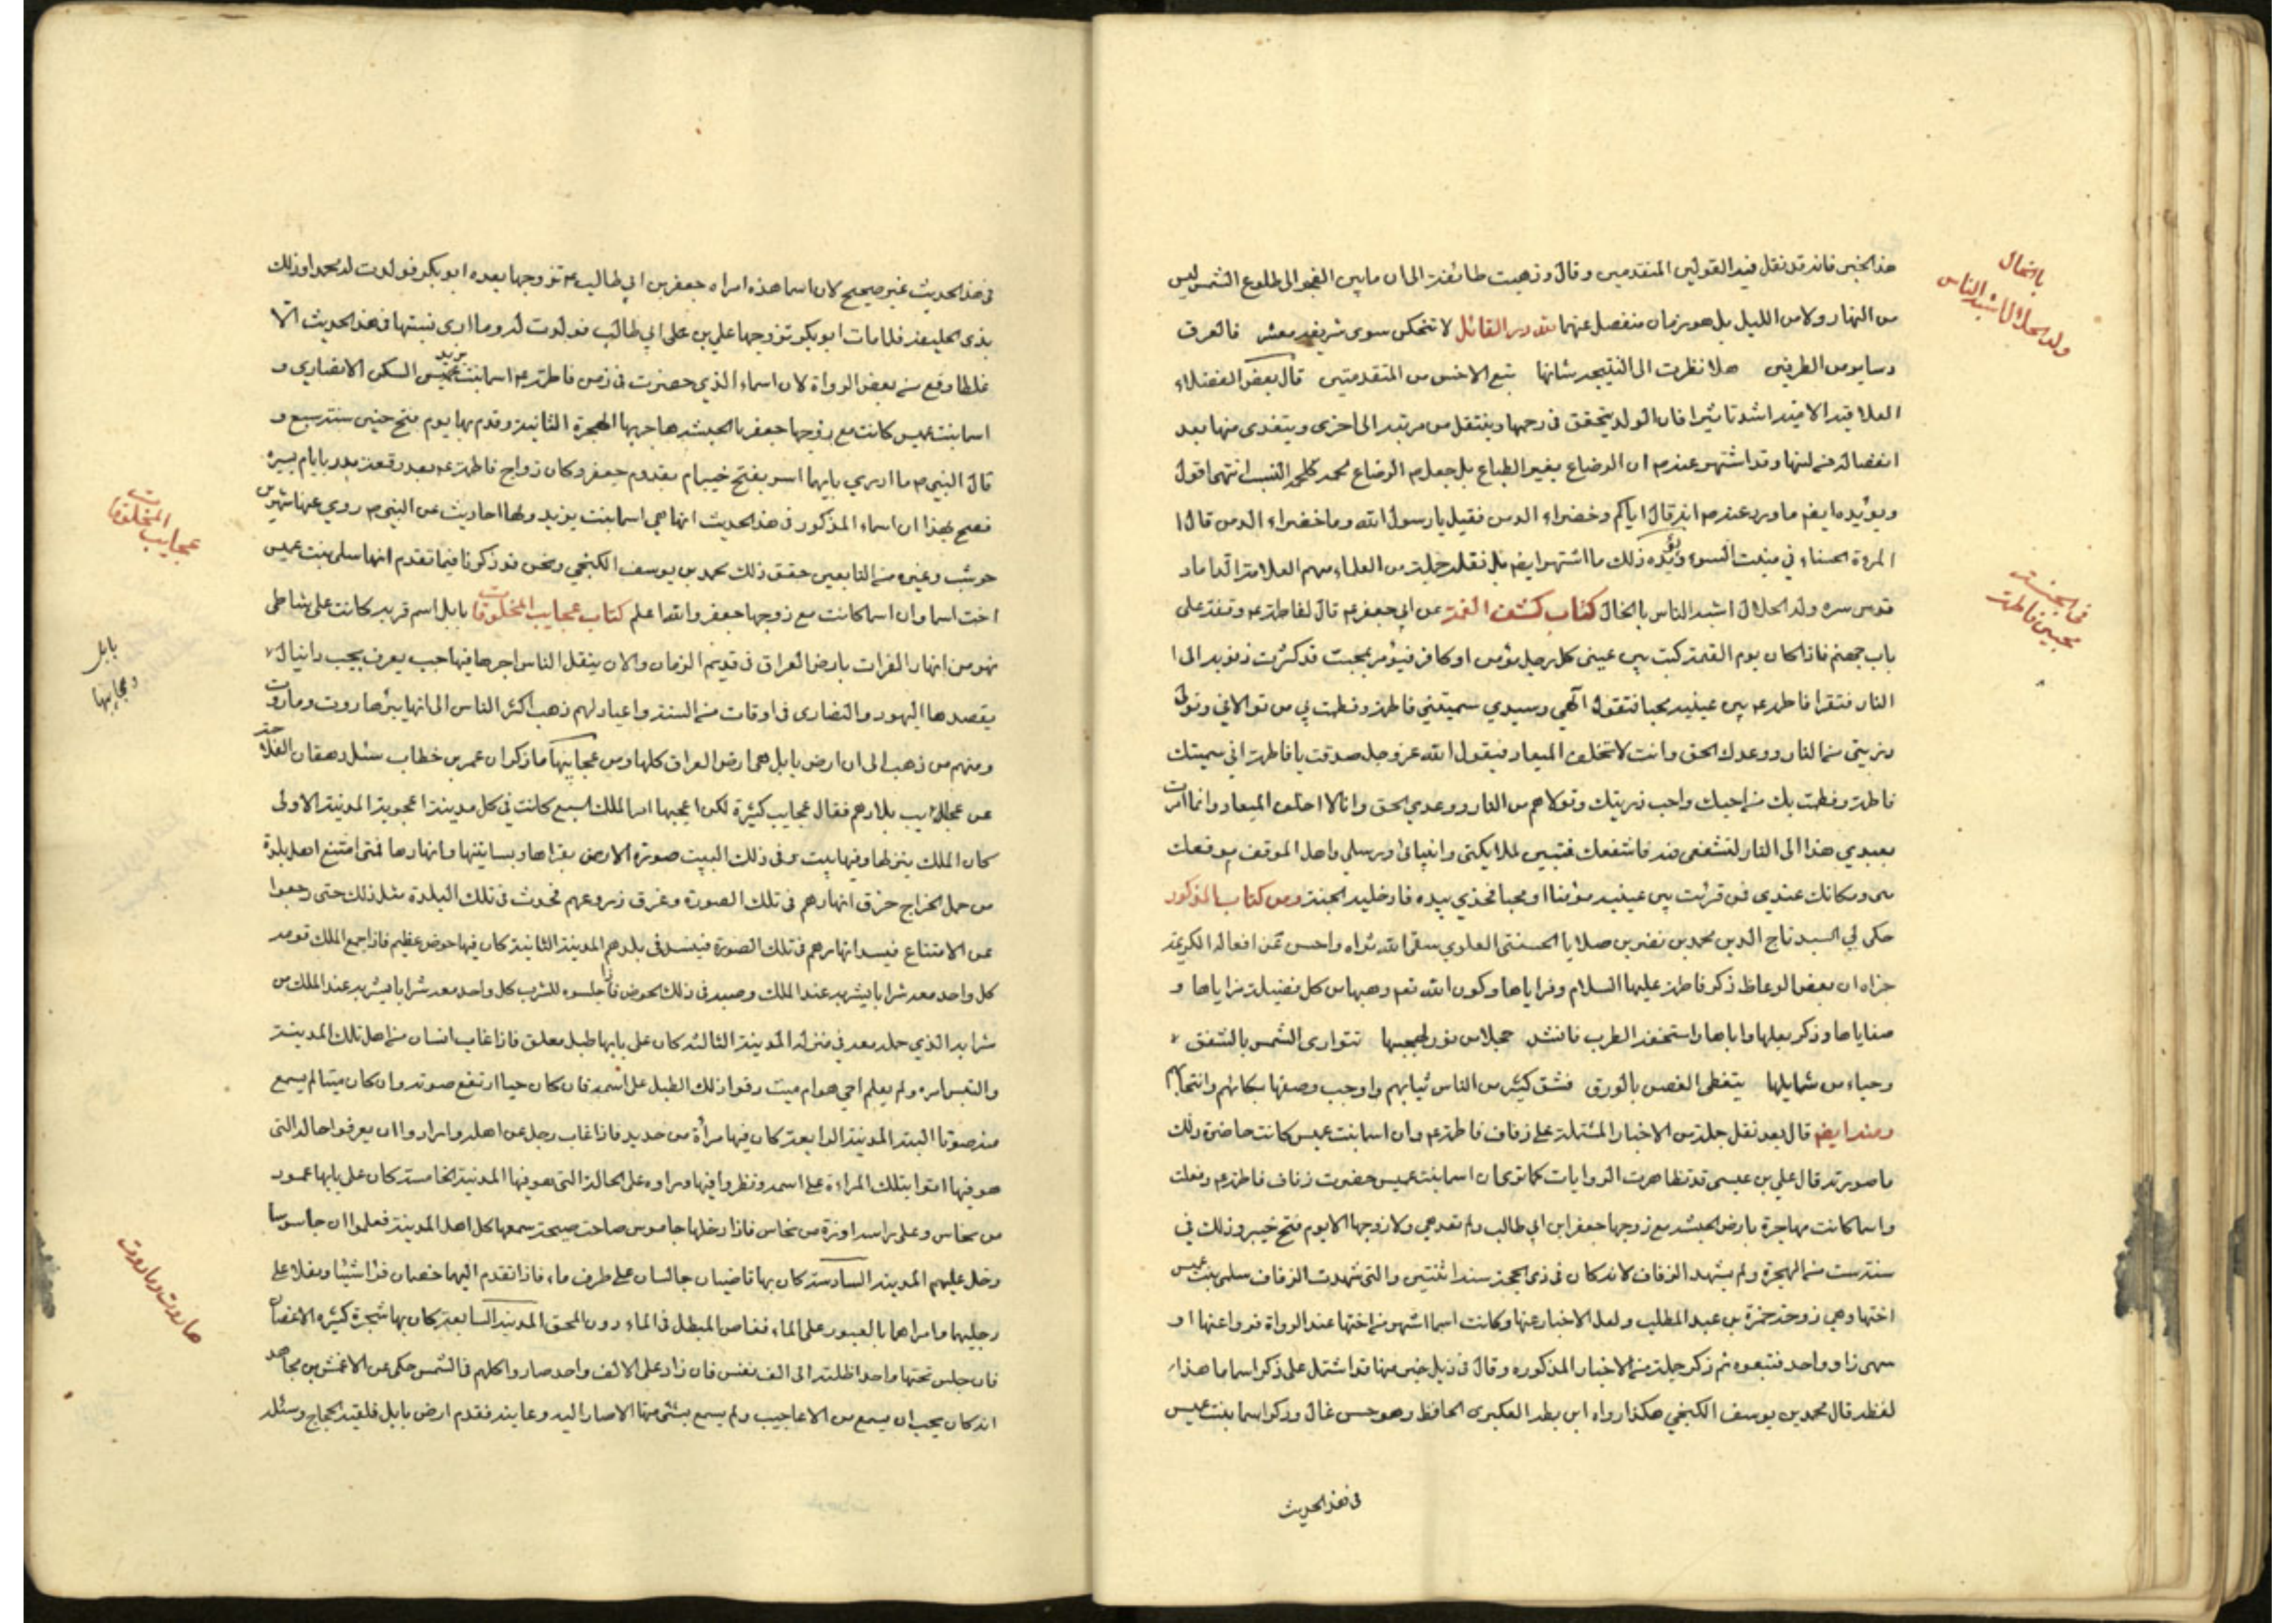 هذا الخبر فانه قد نقل فيه القولين المتقدمين وقال وذهبت طائفة الى ان ما بين الفجر الى طلوع الشمس ليس
من النهار ولا من الليل بل هو زمان منفصل عنهما لله در القائل لا تنحكن سوى شريفة معشر فالعرق
دساس من الطرفين هلا نظرت الى النتيجة شانها تتبع الاخس من المقدمتين قال بعض الفضلاء
العلاقة الامية اشد تاثيرا فان الولد يتحقق في رحمها وينتقل من مرتبة الى اخرى ويتغذى منها بعد
انفصاله من لبنها وقد اشتهر عندهم ان الرضاع يغير الطباع بل جعلهم الرضاع لحمه كلحمة النسب انتهى اقول
ويؤيده ايضا ما ورد عندهم انه قال اياكم وخضراء الدمن فقيل يا رسول الله وما خضراء الدمن قال ا
لمرءة الحسناء في منبت السوء ويؤيده ذلك ما اشتهر ايضا بل نقله جملة من العلماء منهم العلامة الداماد
قدس سره ولد الحلال اشبه الناس بالخال كتاب كشف الغمة عن ابي جعفر ع قال لفاطمة ع وقفة على
باب جهنم فاذا كان يوم القيمة كتب بين عيني كل رجل مؤمن او كافر فيؤمر بمحب قد كثرت ذنوبه الى ا
لنار فتقرا فاطمة ع بين عينيه محبا فتقول الهي وسيدي سميتني فاطمة وفطمت بي من تولاني وتولى
ذريتي من النار ووعدك الحق وانت لا تخلف الميعاد فيقول الله عز وجل صدقت يا فاطمة اني سميتك
فاطمة وفطمت بك من احبك واحب ذريتك وتولاهم من النار ووعدي الحق وانا لا اخلف الميعاد وانما امرت
بعبدي هذا الى النار لتشفعي فيه فاشفعك فتبين لملائكتي وانبيائي ورسلي واهل الموقف موقعك
مني ومكانك عندي فمن قرئت بين عينيه مؤمنا او محبا فخذي بيده فادخليه الجنة ومن كتاب المذكور
حكى لي السيد تاج الدين محمد بن نصر بن صلايا الحسيني العلوي سقى الله ثراه واحسن عن افعاله الكريمة
جزاه ان بعض الوعاظ ذكر فاطمة عليها السلام ومزاياها وكون الله تعم وهبها من كل فضيلة مزاياها و
صفاياها وذكر بعلها واباها واستخفه الطرب فانشد خجلا من نور بهجتها تتوارى الشمس بالشفق
وحياء من شمايلها يتغطى الغصن بالورق فشق كثير من الناس ثيابهم واوجب وصفها بكائهم وانتحابهم
ومنه ايضا قال بعد نقل جملة من الاخبار المشتملة على زفاف فاطمة ع وان اسما بنت عميس كانت حاضرة ذلك
ما صورته قال علي بن عيسى قد تظاهرت الروايات كما ترى ان اسما بنت عميس حضرت زفاف فاطمة ع وفعلت
واسما كانت مهاجرة بارض الحبشة مع زوجها جعفر ابن ابي طالب ولم تقدم هي ولا زوجها الا يوم فتح خيبر وذلك في
سنة ست من الهجرة ولم يشهد الزفاف لانه كان في ذي الحجة سنة اثنتين والتي شهدت الزفاف سلمى بنت عميس
اختها وهي زوجة حمزة بن عبد المطلب ولعل الاخبار عنها وكانت اسما اشهر من اختها عند الرواة فرووا عنها او
سهى راو واحد فتبعوه ثم ذكر جملة من الاخبار المذكوره وقال في ذيل خبر منها قد اشتمل على ذكر اسما ما هذا
لفظه قال محمد بن يوسف الكنجي هكذا رواه ابن بطة العكبرى الحافظ وهو حسن عال وذكر اسما بنت عميس
في هذا الحديث
بالخال
ولد الحلال اشبه الناس
في الجنة
محبين فاطمة
في هذا الحديث غير صحيح لان اسما هذه امراه جعفر بن ابي طالب ع تزوجها بعده ابو بكر فولدت له محمدا وذلك
بذي الحليفة فلما مات ابو بكر تزوجها علي بن ابي طالب فولدت له وما ارى نسبتها في هذا الحديث الا
غلطا وقع من بعض الرواة لان اسماء الذي حضرت في زمن فاطمة ع اسما بنت يزيد السكن الانصاري و
اسما بنت عميس كانت مع زوجها جعفر بالحبشة هاجر بها الهجرة الثانية وقدم بها يوم فتح حنين سنة سبع و
قال النبي ص ما ادري بايهما اسر بفتح خيبر ام بقدوم جعفر وكان زواج فاطمة ع بعد وقعة بدر بايام يسيره
فصح بهذا ان اسماء المذكور في هذا الحديث انما هي اسما بنت يزيد ولها احاديث عن النبي ص روى عنها شهر بن
حوشب وغيره من التابعين حقق ذلك محمد بن يوسف الكنجي ونحن قد ذكرنا فيما تقدم انها سلمى بنت عميس
اخت اسما وان اسما كانت مع زوجها جعفر والله اعلم كتاب عجايب المخلوقات بابل اسم قرية كانت على شاطى
نهر من انهار الفرات بارض العراق في قديم الزمان والان ينقل الناس اجرها فيها جب يعرف بجب دانيال
يقصدها اليهود والنصارى في اوقات من السنة واعياد لهم ذهب اكثر الناس الى انها بئر هاروت وماروت
ومنهم من ذهب الى ان ارض بابل هي ارض العراق كلها ومن عجايبها ما ذكر ان عمر بن خطاب سئل دهقان الفلاحة
عن عجايب بلادهم فقال عجايب كثيرة لكن اعجبها امر الملك السبع كانت في كل مدينة اعجوبة المدينة الاولى
كان الملك ينزلها وفيها بيت وفي ذلك البيت صورة الارض بقراها وبساتينها وانهارها فمتى امتنع اهل بلدة
من حمل الخراج خرق انهارهم في تلك الصورة وغرق زروعهم فحدث في تلك البلدة مثل ذلك حتى رجعوا
عن الامتناع فيسد انهارهم في تلك الصورة فينسد في بلدهم المدينة الثانية كان فيها حوض عظيم فاذا جمع الملك قومه
كل واحد معه شرابا يشربه عند الملك وصبه في ذلك الحوض فاذا جلسوا للشرب كل واحد معه شرابا يشربه عند الملك من
شرابه الذي حمله معه في منزله المدينة الثالثة كان على بابها طبل معلق فاذا غاب انسان من اهل تلك المدينة
والتبس امره ولم يعلم احي هو ام ميت دقوا ذلك الطبل على اسمه فان كان حيا ارتفع صوته وان كان ميتا لم يسمع
منه صوتا البتة المدينة الرابعة كان فيها مرأة من حديد فاذا غاب رجل عن اهله وارادوا ان يعرفوا حاله التي
هو فيها اتوا بتلك المراءة على اسمه ونظروا فيها وراوه على الحالة التي هو فيها المدينة الخامسة كان على بابها عمود
من نحاس وعلى راسه اوزة من نحاس فاذا دخلها جاسوس صاحت صيحة سمعها كل اهل المدينة فعلموا ان جاسوسا
دخل عليهم المدينة السادسة كان بها قاضيان جالسان على طرف ماء فاذا تقدم اليهما خصمان قرا شيئا وتفلا على
رجليهما وامراهما بالعبور على الماء فغاص المبطل في الماء دون المحق المدينة السابعة كان بها شجرة كثيره الاغصان
فان جلس تحتها واحد اظلته الى الف نفس فان زاد على الالف واحد صاروا كلهم في الشمس حكى عن الاعمش بن مجاهد
انه كان يحب ان يسمع من الاعاجيب ولم يسمع بشئ منها الا صار اليه وعاينه فقدم ارض بابل فلقيه الحجاج وسئله
عجايب المخلوقات
بابل
وعجايبها
هاروت وماروت